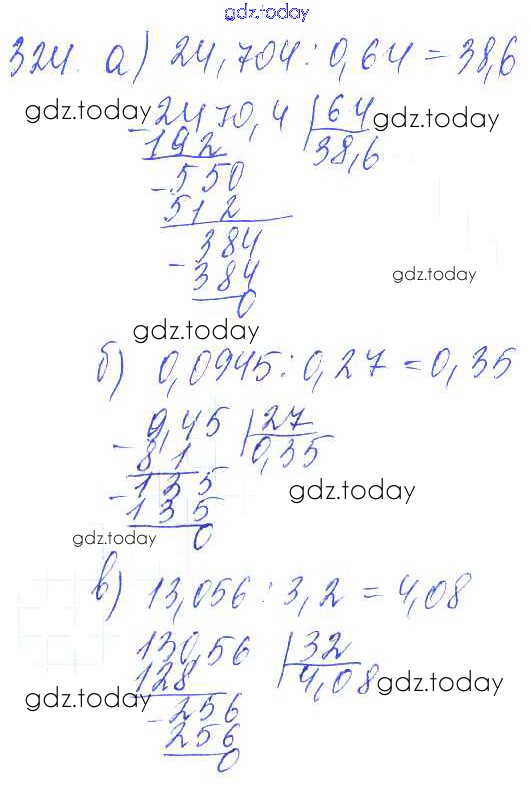 gdz.today
324. а) 24,704 : 0,64 = 38,6
gdz.today
- 2470,4 | 64
gdz.today
192 38,6
- 550
512
- 384
gdz.today
384
0
gdz.today
б) 0,0945 : 0,27 = 0,35
- 9,45 | 27
81 0,35
- 135
gdz.today
135
gdz.today
0
в) 13,056 : 3,2 = 4,08
130,56 | 32
128 4,08
gdz.today
gdz.today
- 256
256
0